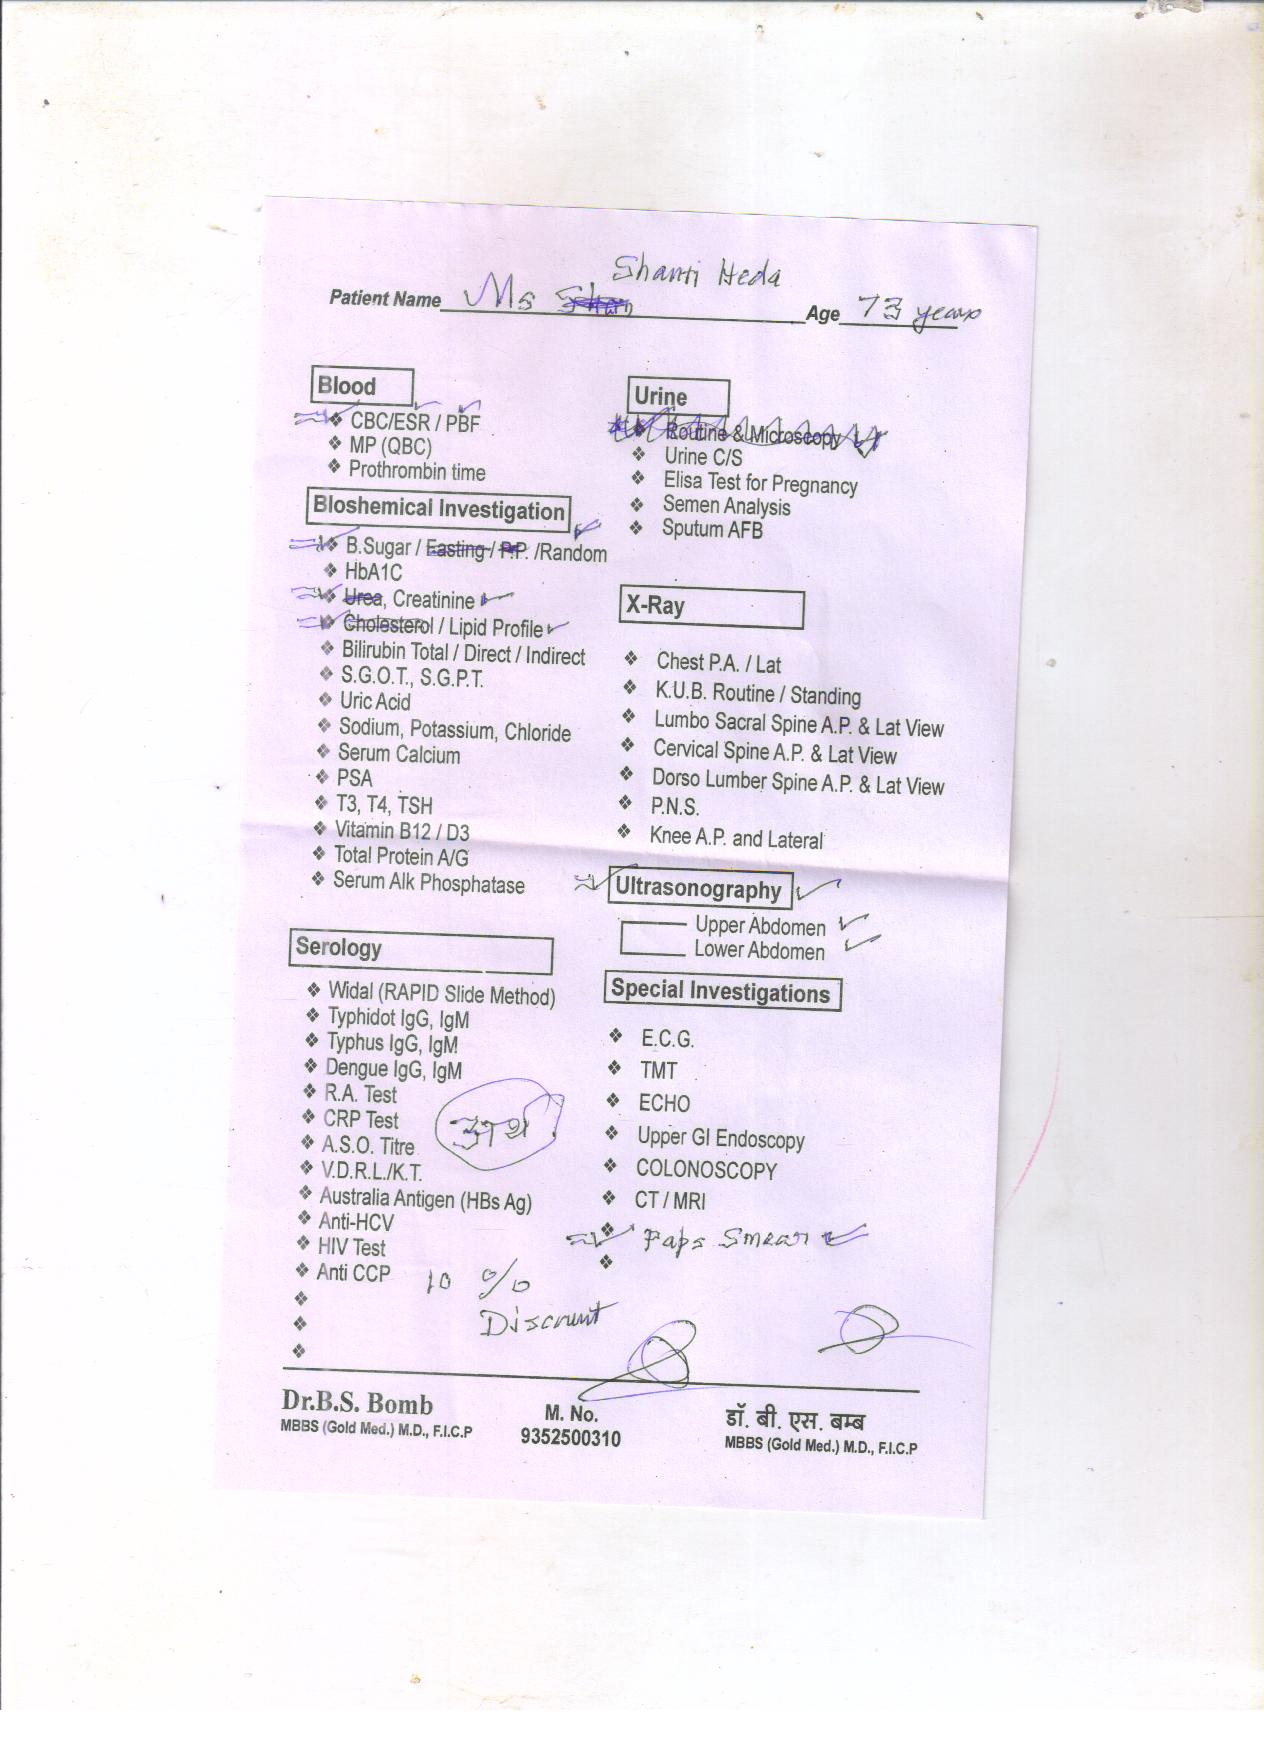 Shanti Heda
Patient Name Ms Age 73 years
Blood
CBC/ESR / PBF
MP (QBC)
Prothrombin time
Bloshemical Investigation
B.Sugar / Fasting / P.P. /Random
HbA1C
Urea, Creatinine
Cholesterol / Lipid Profile
Bilirubin Total / Direct / Indirect
S.G.O.T., S.G.P.T.
Uric Acid
Sodium, Potassium, Chloride
Serum Calcium
PSA
T3, T4, TSH
Vitamin B12 / D3
Total Protein A/G
Serum Alk Phosphatase
Serology
Widal (RAPID Slide Method)
Typhidot IgG, IgM
Typhus IgG, IgM
Dengue IgG, IgM
R.A. Test
CRP Test
A.S.O. Titre
V.D.R.L./K.T.
Australia Antigen (HBs Ag)
Anti-HCV
HIV Test
Anti CCP
10 %
Discount
Urine
Routine & Microscopy
Urine C/S
Elisa Test for Pregnancy
Semen Analysis
Sputum AFB
X-Ray
Chest P.A. / Lat
K.U.B. Routine / Standing
Lumbo Sacral Spine A.P. & Lat View
Cervical Spine A.P. & Lat View
Dorso Lumber Spine A.P. & Lat View
P.N.S.
Knee A.P. and Lateral
Ultrasonography
Upper Abdomen
Lower Abdomen
Special Investigations
E.C.G.
TMT
ECHO
Upper GI Endoscopy
COLONOSCOPY
CT / MRI
Paps Smear
Dr.B.S. Bomb
MBBS (Gold Med.) M.D., F.I.C.P
M. No.
9352500310
डॉ. बी. एस. बम्ब
MBBS (Gold Med.) M.D., F.I.C.P